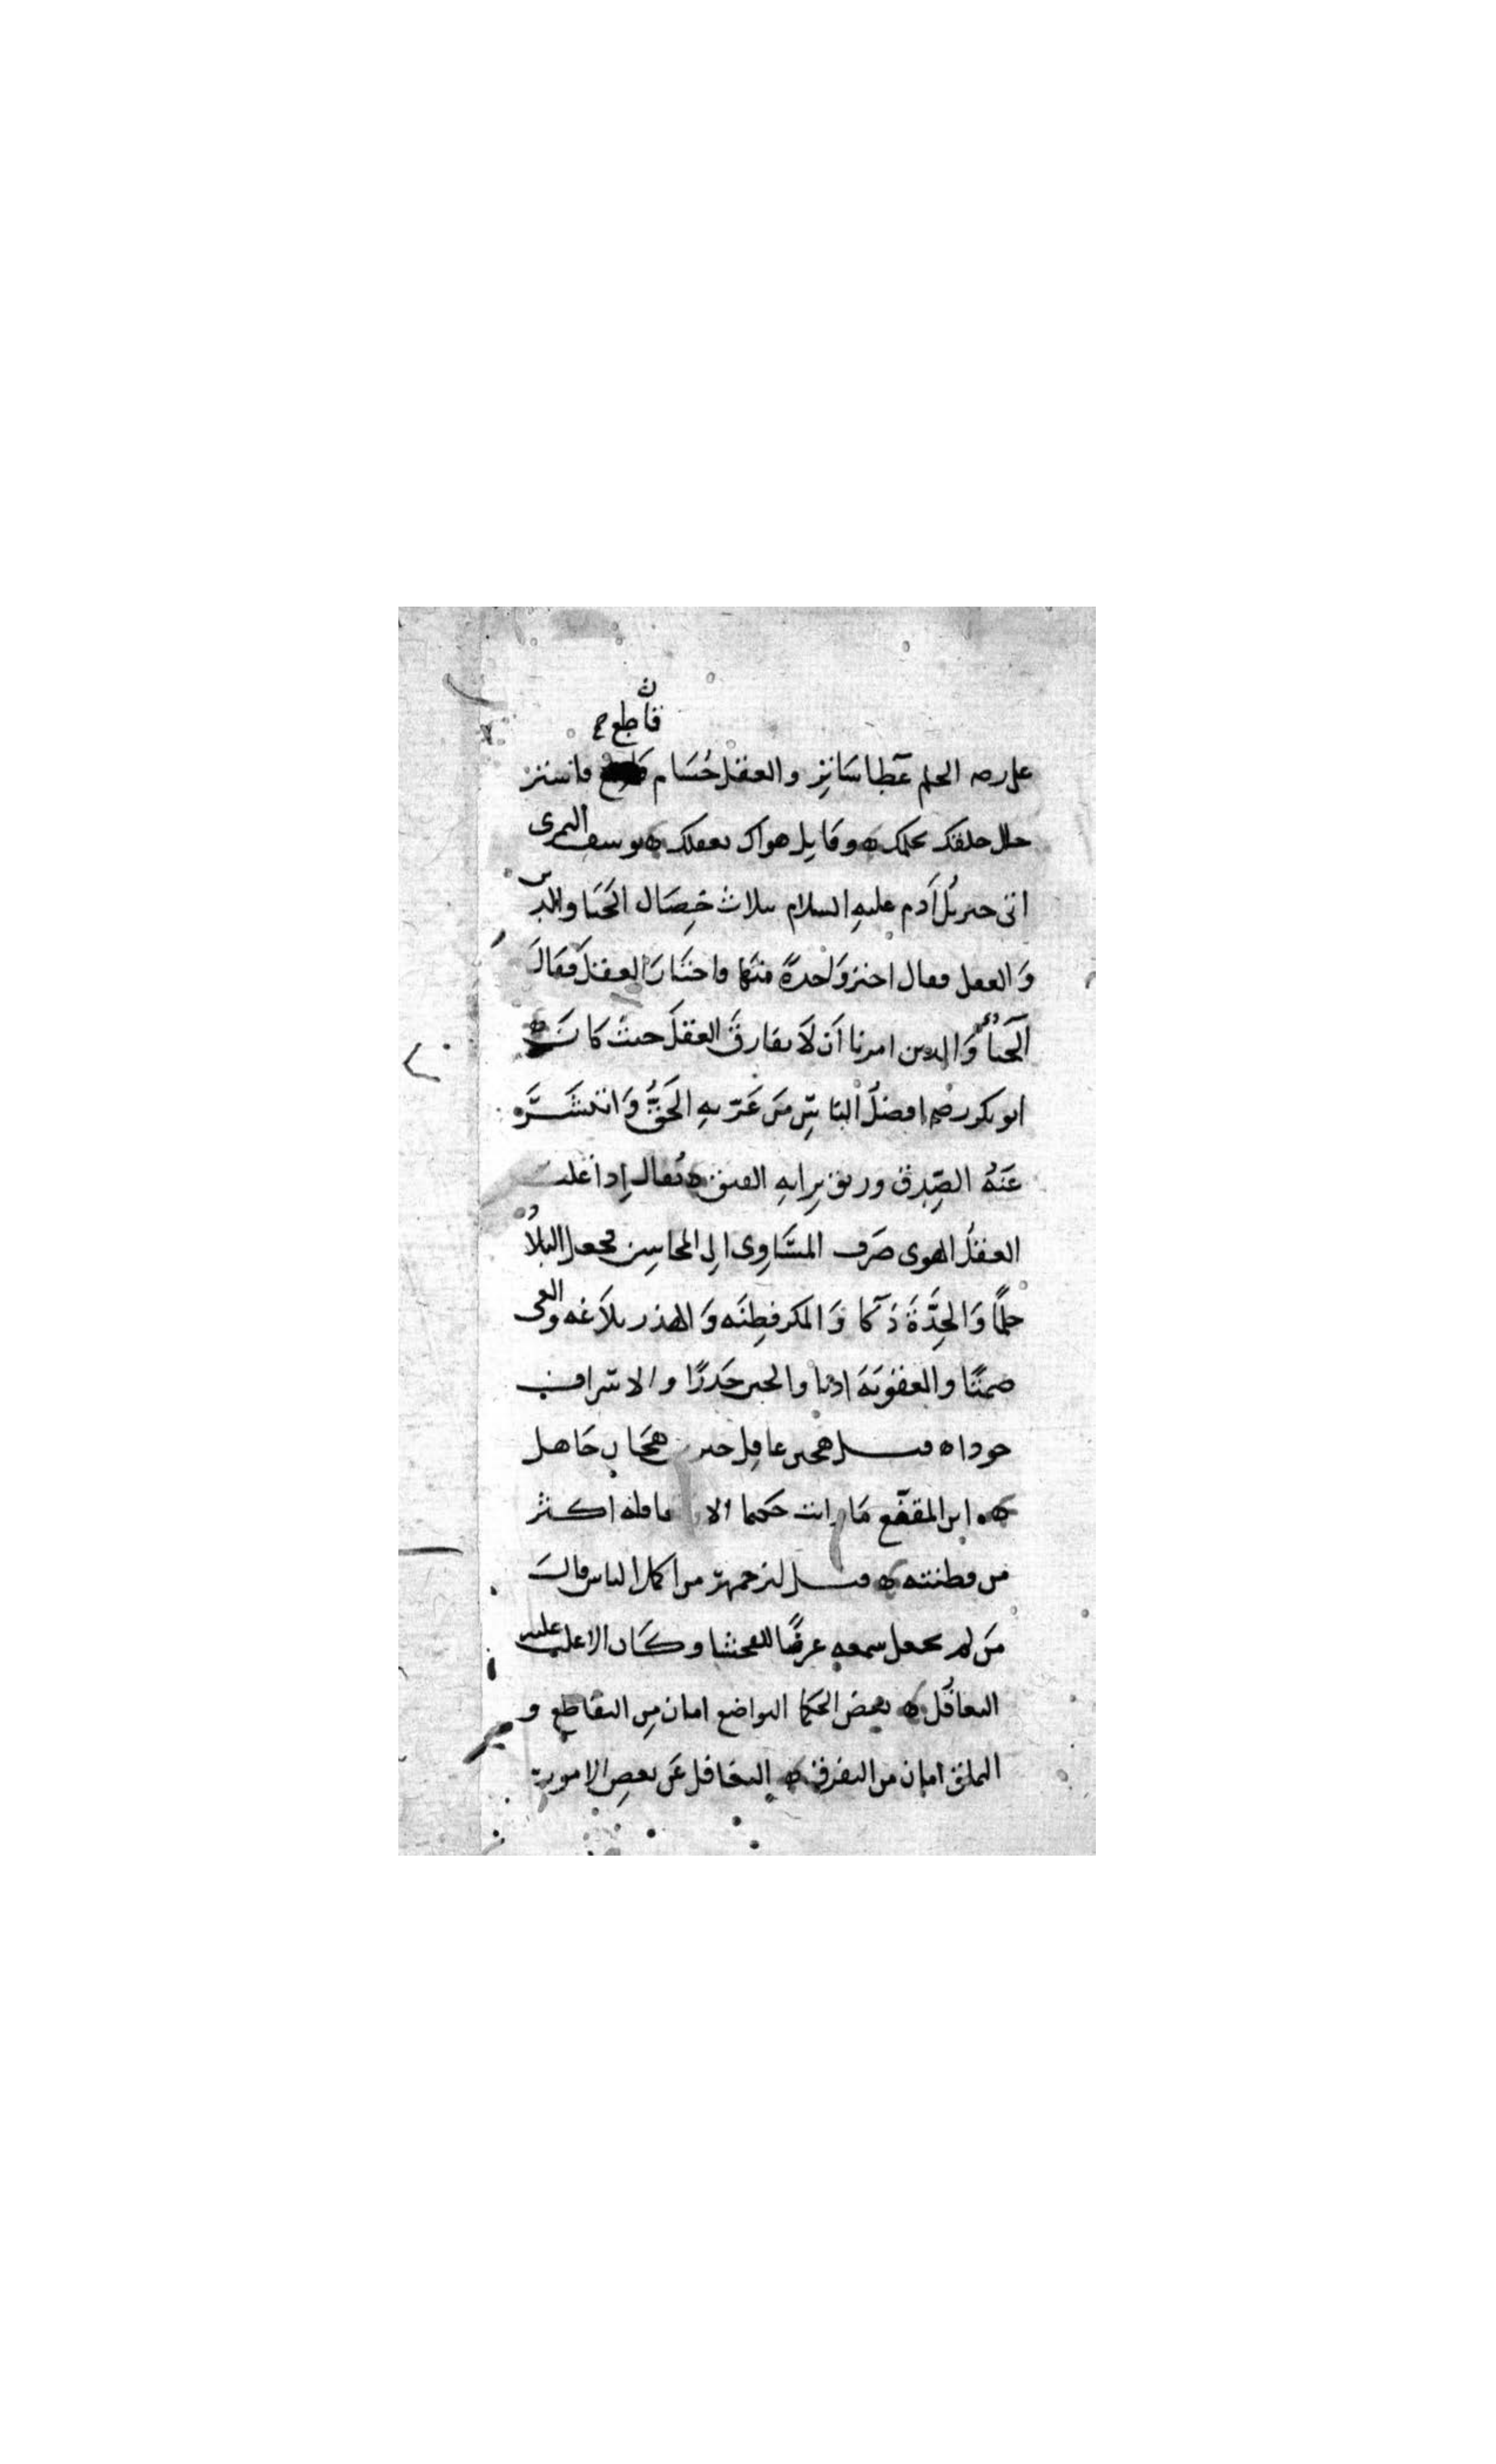 قاطع
على رضه الحلم غطا ساتر والعقل حسام فاستر
خلل خلقك بحلمك ه وقاتل هواك بعقلك ه يوسف النمرى
اتى جبريل آدم عليه السلام بثلاث خصال الحيا والدين
والعقل فقال اختر واحدة منها فاختار العقل فقال
الحياء والدين امرنا أن لا نفارق العقل حيث كان ه
ابو بكر رضه افضل الناس من عز به الحق وانتشر
عنه الصدق ورتق برايه الفتق ه يقال إذا غلب
العقل الهوى صرف المساوى الى المحاسن فجعل البلاد
حلما والحدة ذكا والمكر فطنه والهذر بلاغه والعى
صمتا والعقوبة ادبا والجبن حذرا والاسراف
جودا ه قيل هجين عاقل خير هجان جاهل
ه ابن المقفع ما رايت حكيما الا تغافله اكثر
من فطنته ه قيل لبزرجمهر من اكمل الناس قال
من لم يجعل سمعه عرضا للفحشا وكان الاغلب عليه
التغافل ه بعض الحكما التواضع امان من التقاطع و
التملق امان من التفرق ه التغافل عن بعض الامور